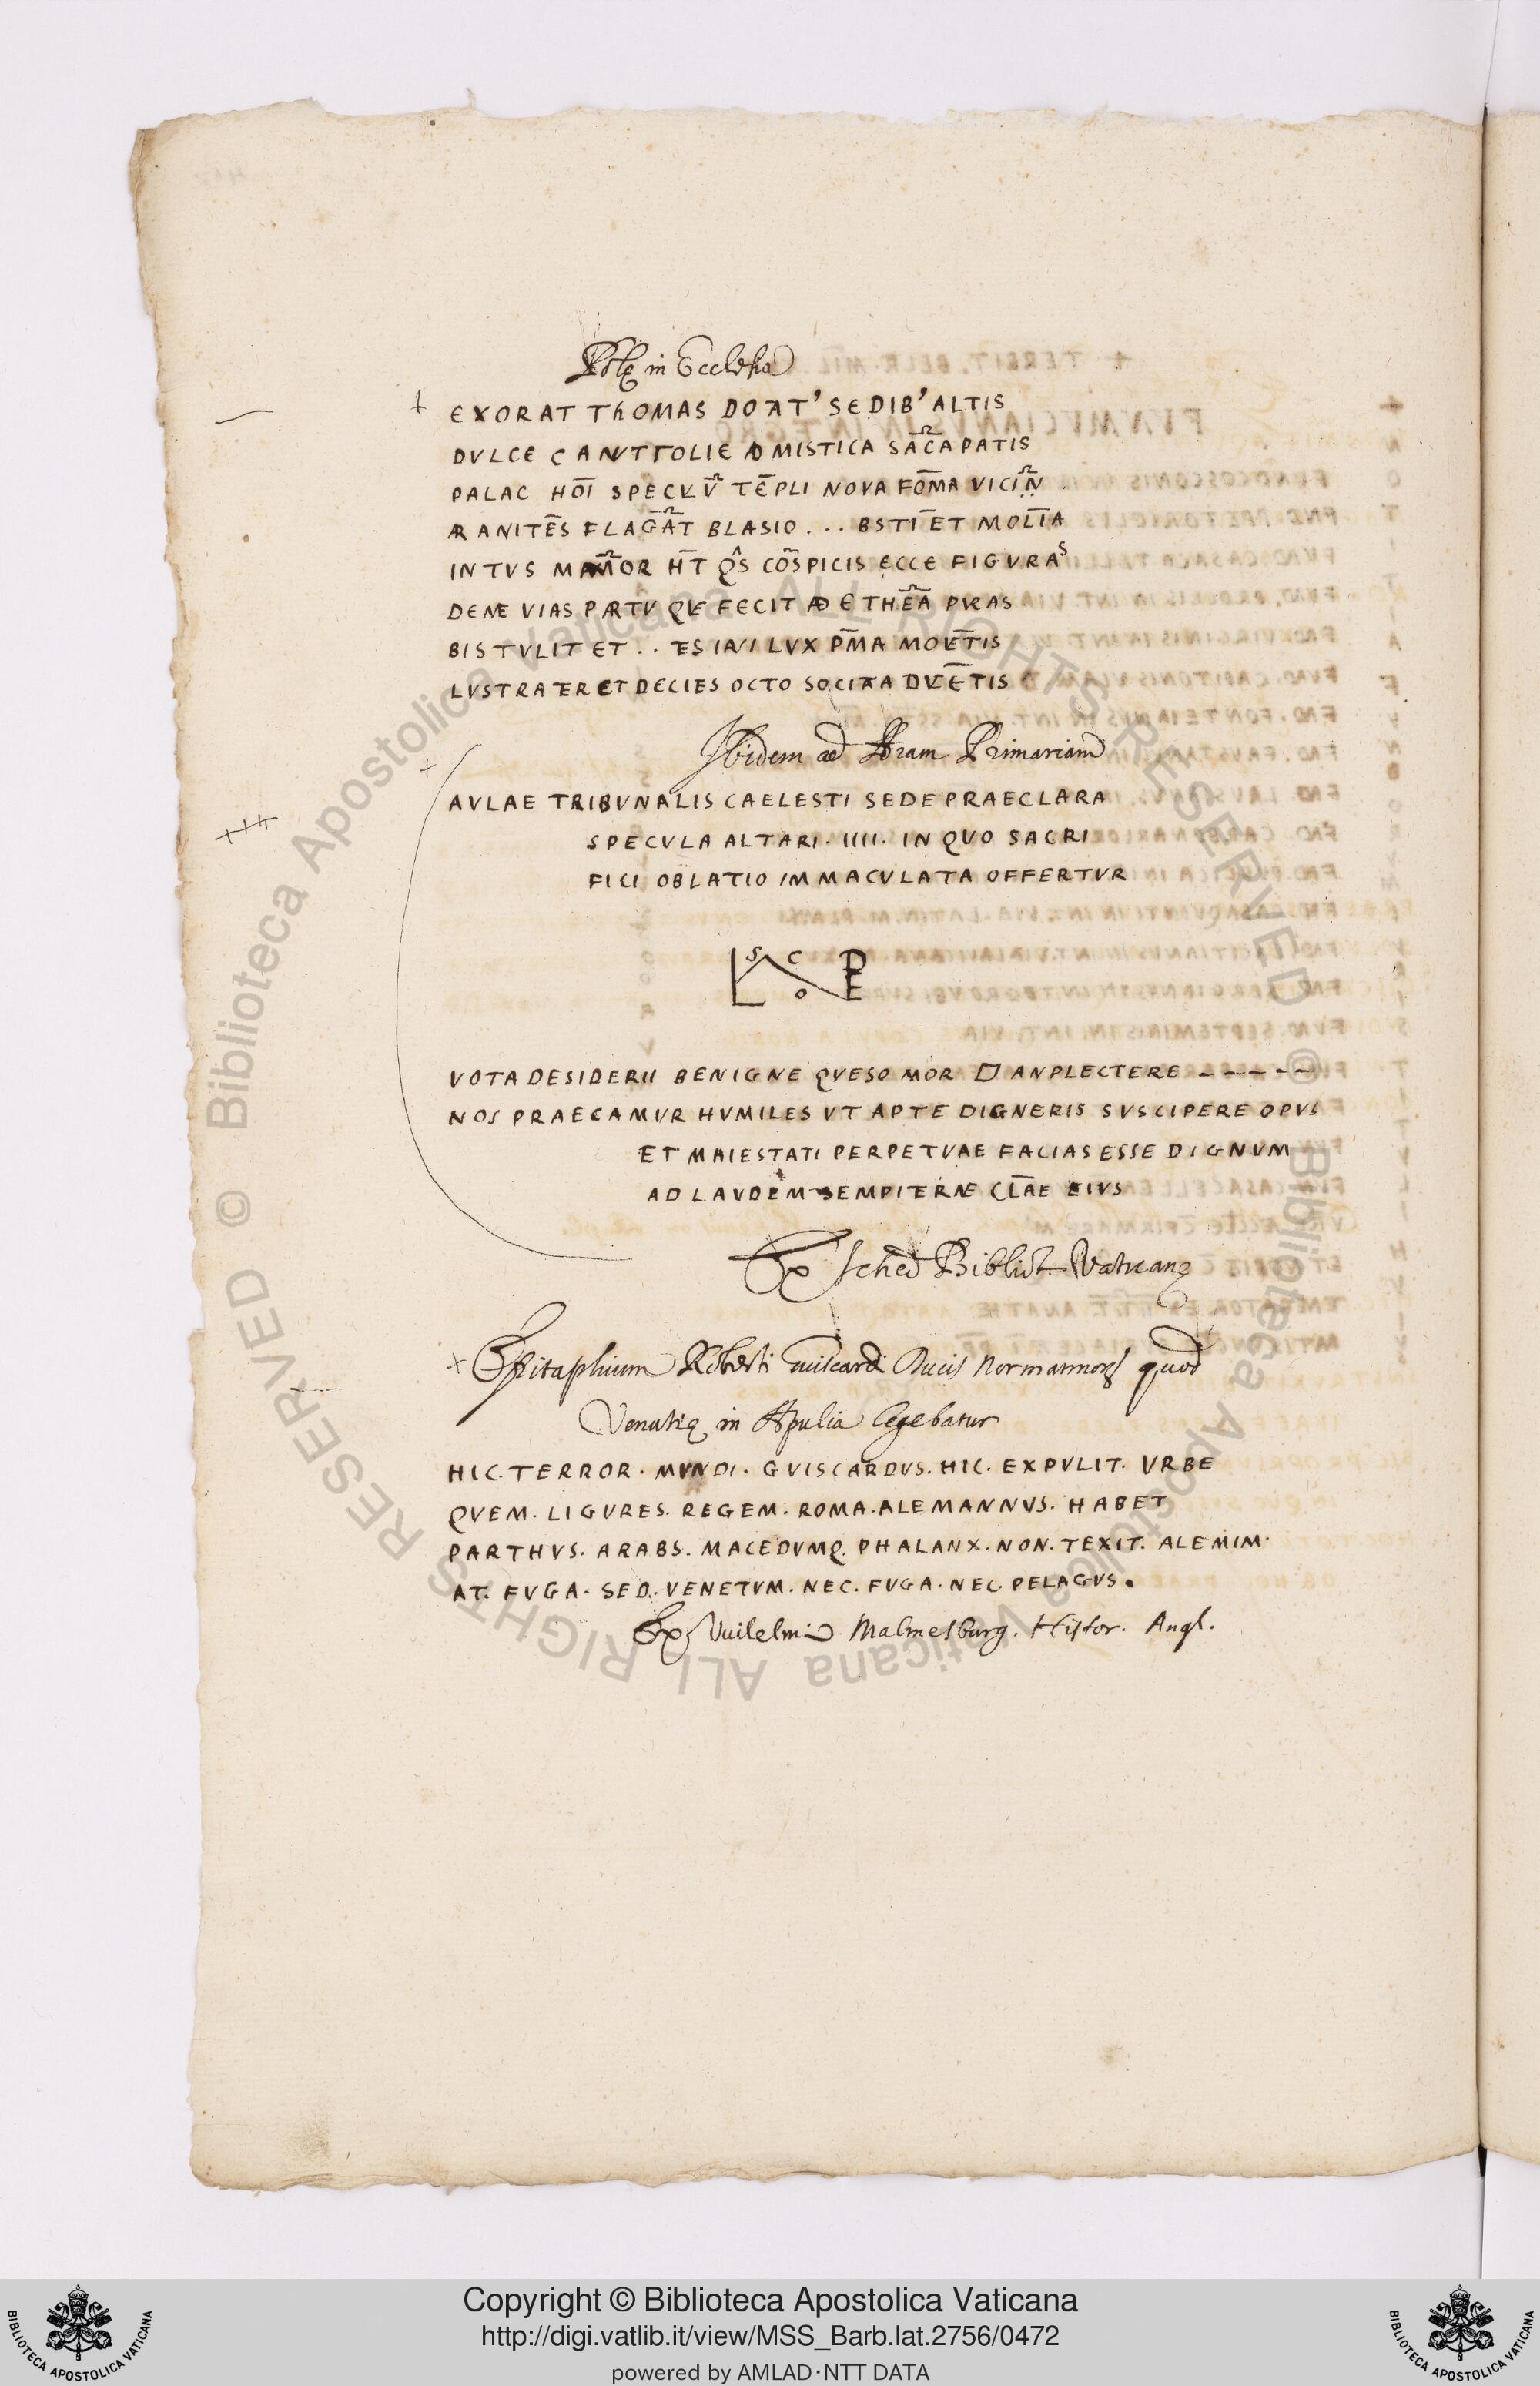 Polæ in Ecclesia
EXORAT THOMAS DOAT' SEDIB' ALTIS
DVLCE CANVTTOLIE AD MISTICA SACAPATIS
PALAC HOI SPECVV TEPLI NOVA FOMA VICIN
ARANITES FLAGAT BLASIO . . . BSTI ET MOLIA
INTVS MAMOR HT QS COSPICIS ECCE FIGVRAS
DENE VIAS PARTV QVE FECIT AD ETHEA PVRAS
BIS TVLIT ET . . TES INI LVX PMA MOVETIS
LVSTRA TER ET DECIES OCTO SOCIATA DVCETIS
Ibidem ad Aram Primariam
AVLAE TRIBVNALIS CAELESTI SEDE PRAECLARA
SPECVLA ALTARI . IIII . IN QVO SACRI
FICI OBLATIO IMMACVLATA OFFERTVR
S C P
L O E
VOTA DESIDERII BENIGNE QVESO MOR ANPLECTERE – – – – –
NOS PRAECAMVR HVMILES VT APTE DIGNERIS SVSCIPERE OPVS
ET MAIESTATI PERPETVAE FACIAS ESSE DIGNVM
AD LAVDEM SEMPITERNE CLAE EIVS
Ex sched Bibliot Vaticanæ
Epitaphium Roberti Guiscardi Ducis Normannorum quod
Venutiæ in Apulia legebatur
HIC. TERROR . MVNDI . GVISCARDVS . HIC . EXPVLIT . VRBE
QVEM . LIGVRES . REGEM . ROMA . ALEMANNVS . HABET
PARTHVS . ARABS . MACEDVMQ. PHALANX . NON . TEXIT . ALEMIM .
AT . FVGA . SED . VENETVM . NEC . FVGA . NEC . PELAGVS .
Ex Vuilelmo Malmesburg. Histor. Angl.
Copyright © Biblioteca Apostolica Vaticana
http://digi.vatlib.it/view/MSS_Barb.lat.2756/0472
powered by AMLAD·NTT DATA
BIBLIOTECA APOSTOLICA VATICANA
BIBLIOTECA APOSTOLICA VATICANA
Biblioteca Apostolica Vaticana ALL RIGHTS RESERVED ©
Biblioteca Apostolica Vaticana ALL RIGHTS RESERVED ©